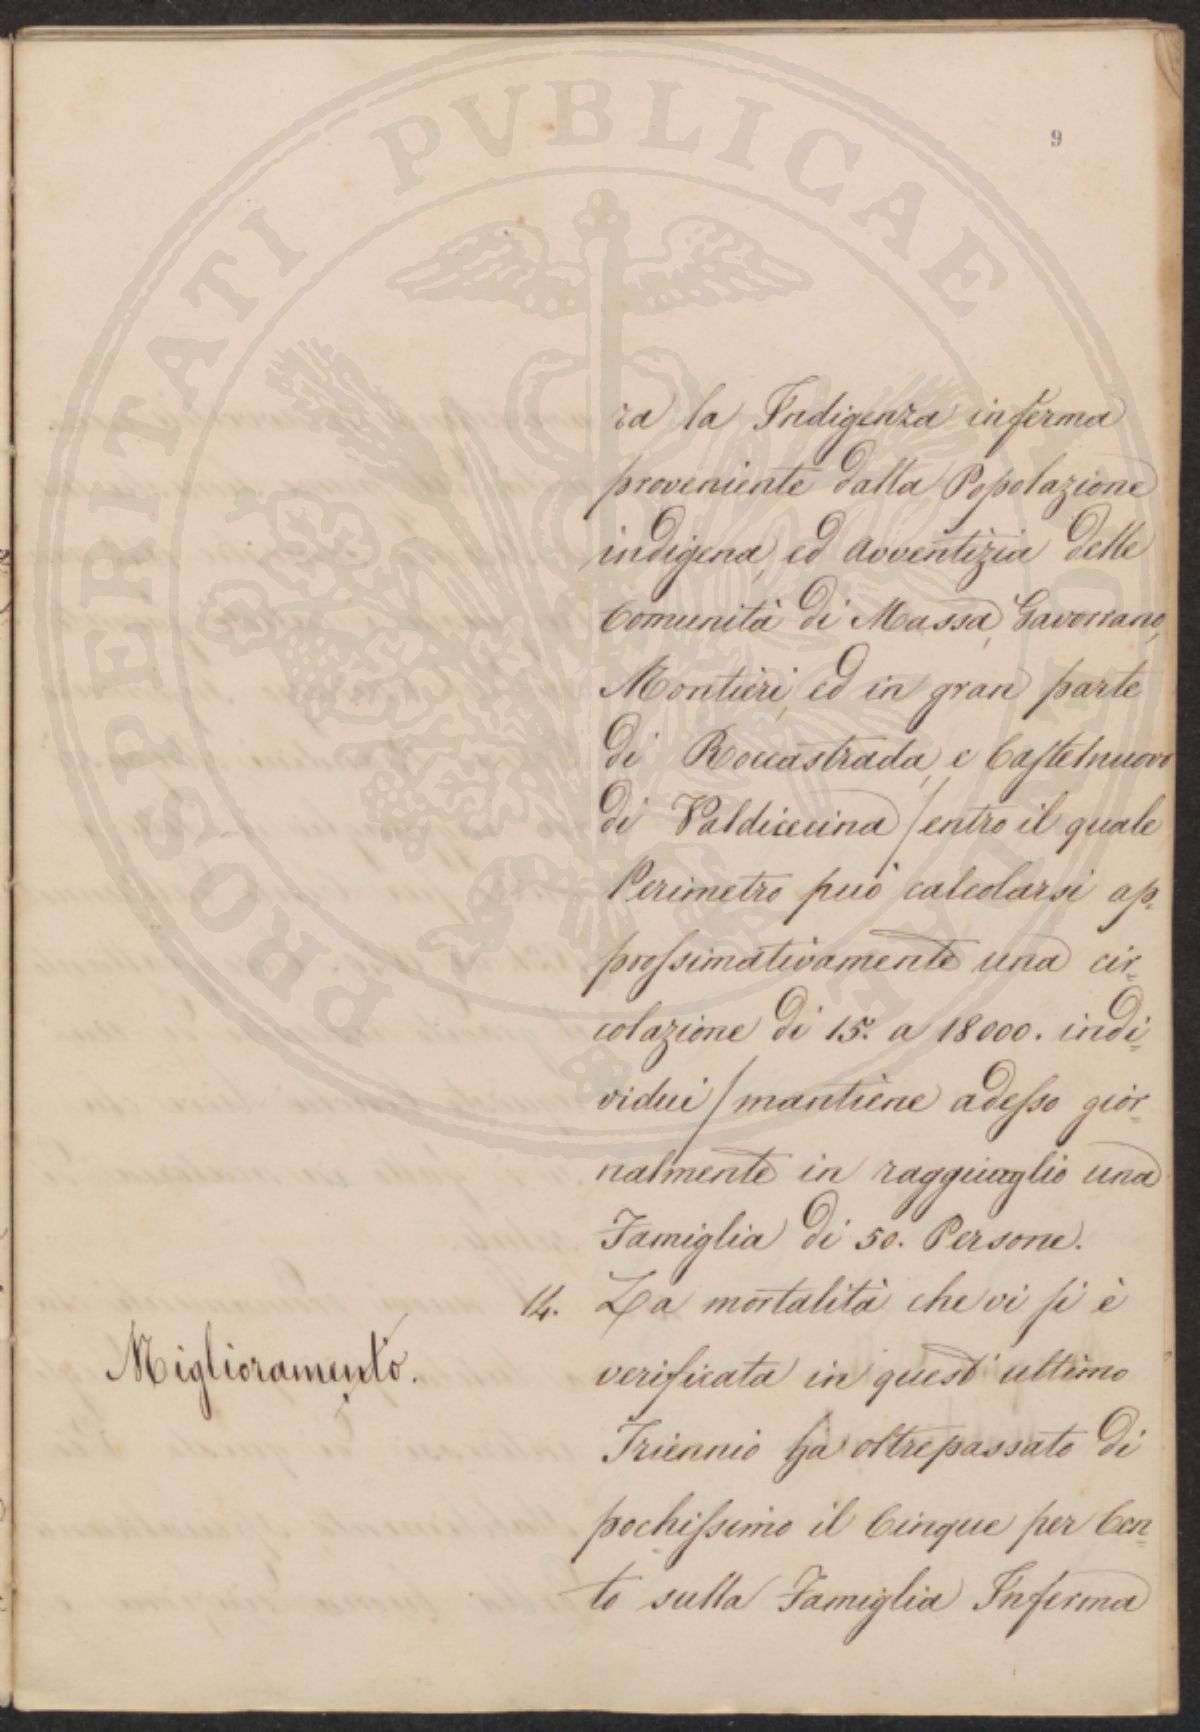 PROSPERITATI PVBLICAE
9
ra la Indigenza inferma
proveniente dalla Popolazione
indigena, ed avventizia delle
Comunità di Massa, Gavorrano,
Montieri, ed in gran parte
di Roccastrada, e Castelnuovo
di Valdicecina / entro il quale
Perimetro può calcolarsi ap=
prossimativamente una cir=
colazione di 15. a 18000. indi=
vidui / mantiene adesso gior=
nalmente in ragguaglio una
Famiglia di 50. Persone.
14. La mortalità che vi si è
Miglioramento.
verificata in quest' ultimo
Triennio ha oltrepassato di
pochissimo il Cinque per Cen=
to sulla Famiglia Inferma